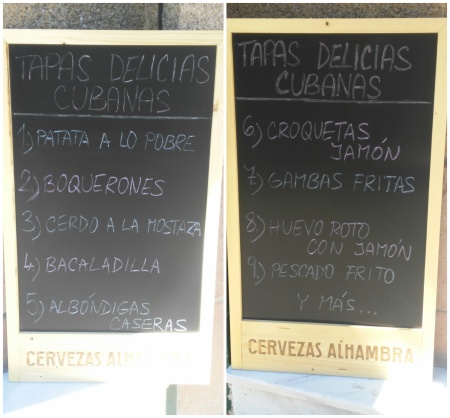 TAPAS DELICIAS
CUBANAS
1) PATATA A LO POBRE
2) BOQUERONES
3) CERDO A LA MOSTAZA
4) BACALADILLA
5) ALBÓNDIGAS
CASERAS
CERVEZAS ALHAMBRA
TAPAS DELICIAS
CUBANAS
6) CROQUETAS
JAMÓN
7) GAMBAS FRITAS
8) HUEVO ROTO
CON JAMÓN
9) PESCADO FRITO
Y MÁS...
CERVEZAS ALHAMBRA